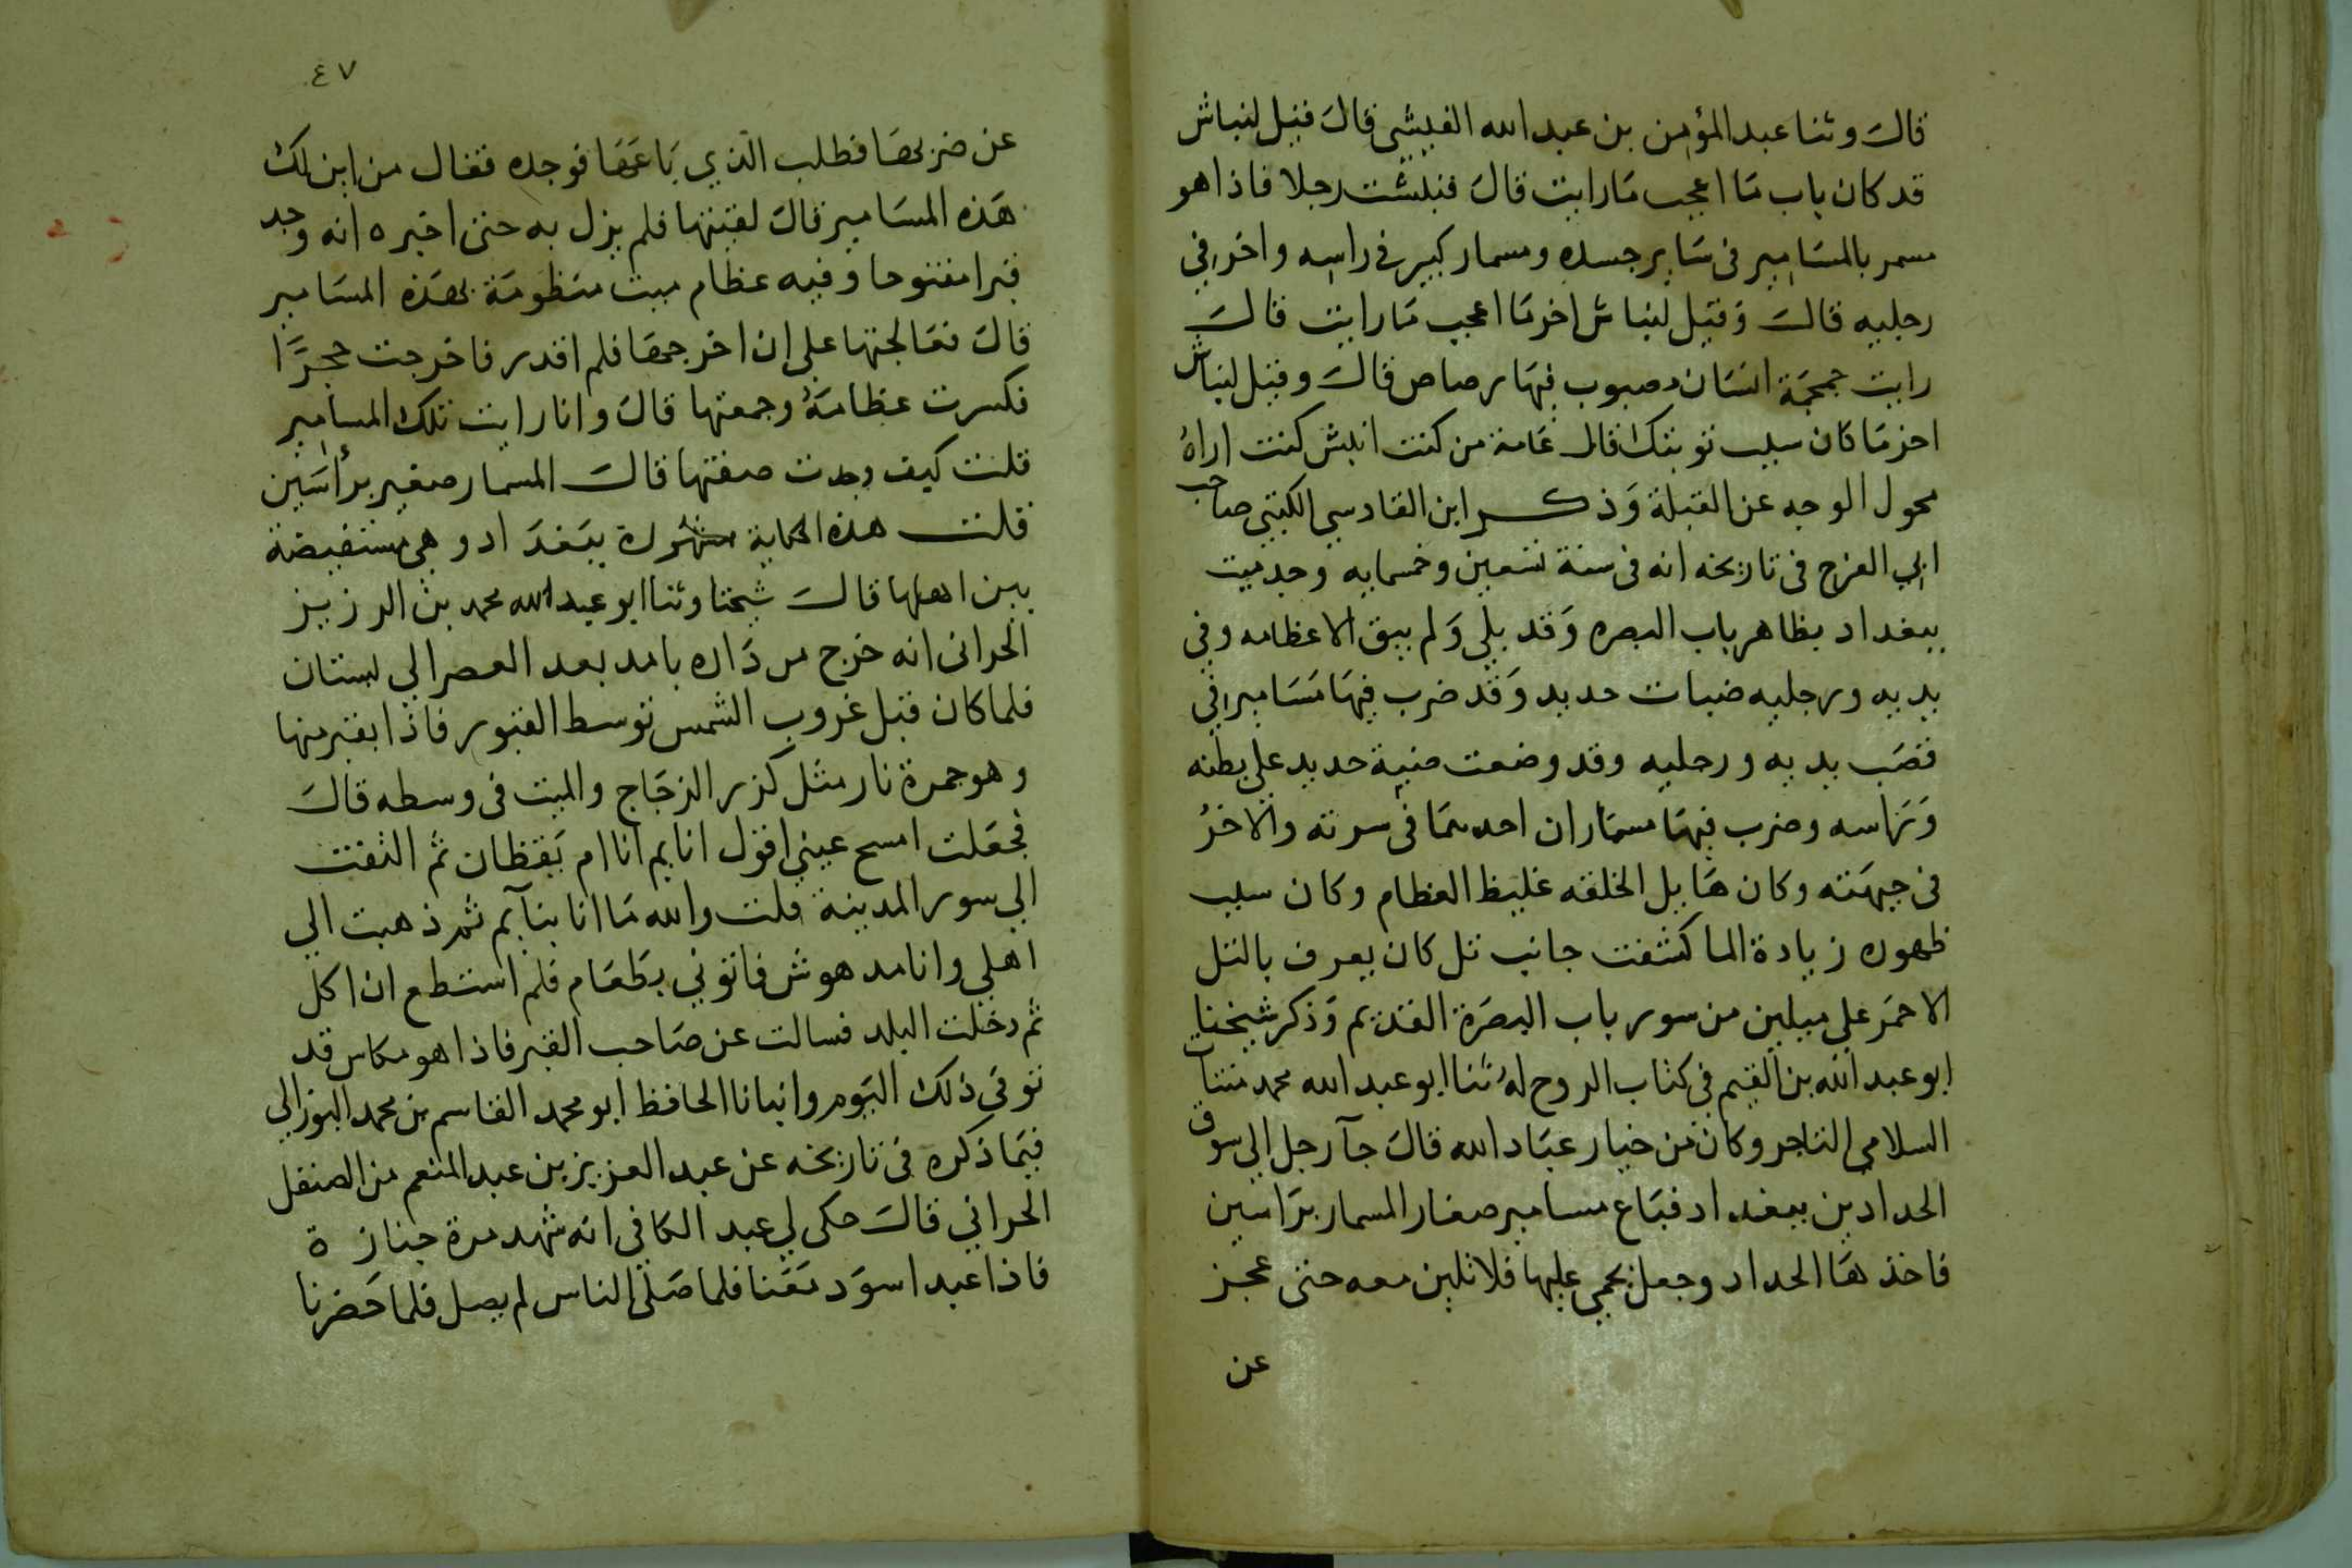 قال وثنا عبد المؤمن بن عبد الله القيسي قال قيل لنباش
قد كان تاب ما اعجب ما رايت قال نبشت رجلا فاذا هو
مسمر بالمسامير في ساير جسده ومسمار كبير في راسه واخر في
رجليه قال وقيل لنباش اخر ما اعجب ما رايت قال
رايت جمجمة انسان مصبوب فيها رصاص قال وقيل لنباش
اخر ما كان سبب توبتك قال عامة من كنت انبش كنت اراه
محول الوجه عن القبلة وذكر ابن القادسي الكتبي صاحب
ابي الفرج في تاريخه انه في سنة تسعين وخمسايه وجد ميت
ببغداد بظاهر باب البصره وقد بلي ولم يبق الا عظامه وفي
يديه ورجليه ضبات حديد وقد ضرب فيها مسامير في
قصب يديه ورجليه وقد وضعت ضبة حديد على بطنه
وراسه وضرب فيها مسماران احدهما في سرته والاخر
في جبهته وكان هايل الخلقه غليظ العظام وكان سبب
ظهوره زيادة الما كشفت جانب تل كان يعرف بالتل
الاحمر على ميلين من سور باب البصرة القديم وذكر شيخنا
ابو عبد الله بن القيم في كتاب الروح له ثنا ابو عبد الله محمد
السلامي التاجر وكان من خيار عباد الله قال جآ رجل الى سوق
الحدادين ببغداد فباع مسامير صغار المسمار براسين
فاخذها الحداد وجعل يحمي عليها فلا تلين معه حتى عجز
عن
٤٧
عن ضربها فطلب الذي باعها فوجده فقال من اين لك
هذه المسامير قال لقيتها فلم يزل به حتى اخبره انه وجد
قبرا مفتوحا وفيه عظام ميت منظومة بهذه المسامير
قال فعالجتها على ان اخرجها فلم اقدر فاخرجت حجرا
فكسرت عظامه وجمعتها قال وانا رايت تلك المسامير
قلت كيف وجدت صفتها قال المسمار صغير برأسين
قلت هذه الحكاية مشهورة ببغداد وهي مستفيضة
بين اهلها قال شيخنا وثنا ابو عبد الله محمد بن الرزيز
الحراني انه خرج من داره بامد بعد العصر الي بستان
فلما كان قبل غروب الشمس توسط القبور فاذا بقبر منها
وهو جمرة نار مثل كزر الزجاج والميت في وسطه قال
فجعلت امسح عيني اقول انايم انا ام يقظان ثم التفت
الي سور المدينة قلت والله ما انا بنآيم ثم ذهبت الي
اهلي وانا مدهوش فاتوني بطعام فلم استطع ان اكل
ثم دخلت البلد فسالت عن صاحب القبر فاذا هو مكاس قد
توفي ذلك اليوم وانبانا الحافظ ابو محمد القاسم بن محمد البرزالي
فيما ذكره في تاريخه عن عبد العزيز بن عبد المنعم من الصنقل
الحراني قال حكى لي عبد الكافي انه شهد مرة جنازة
فاذا عبد اسود معنا فلما صلى الناس لم يصل فلما حضرنا